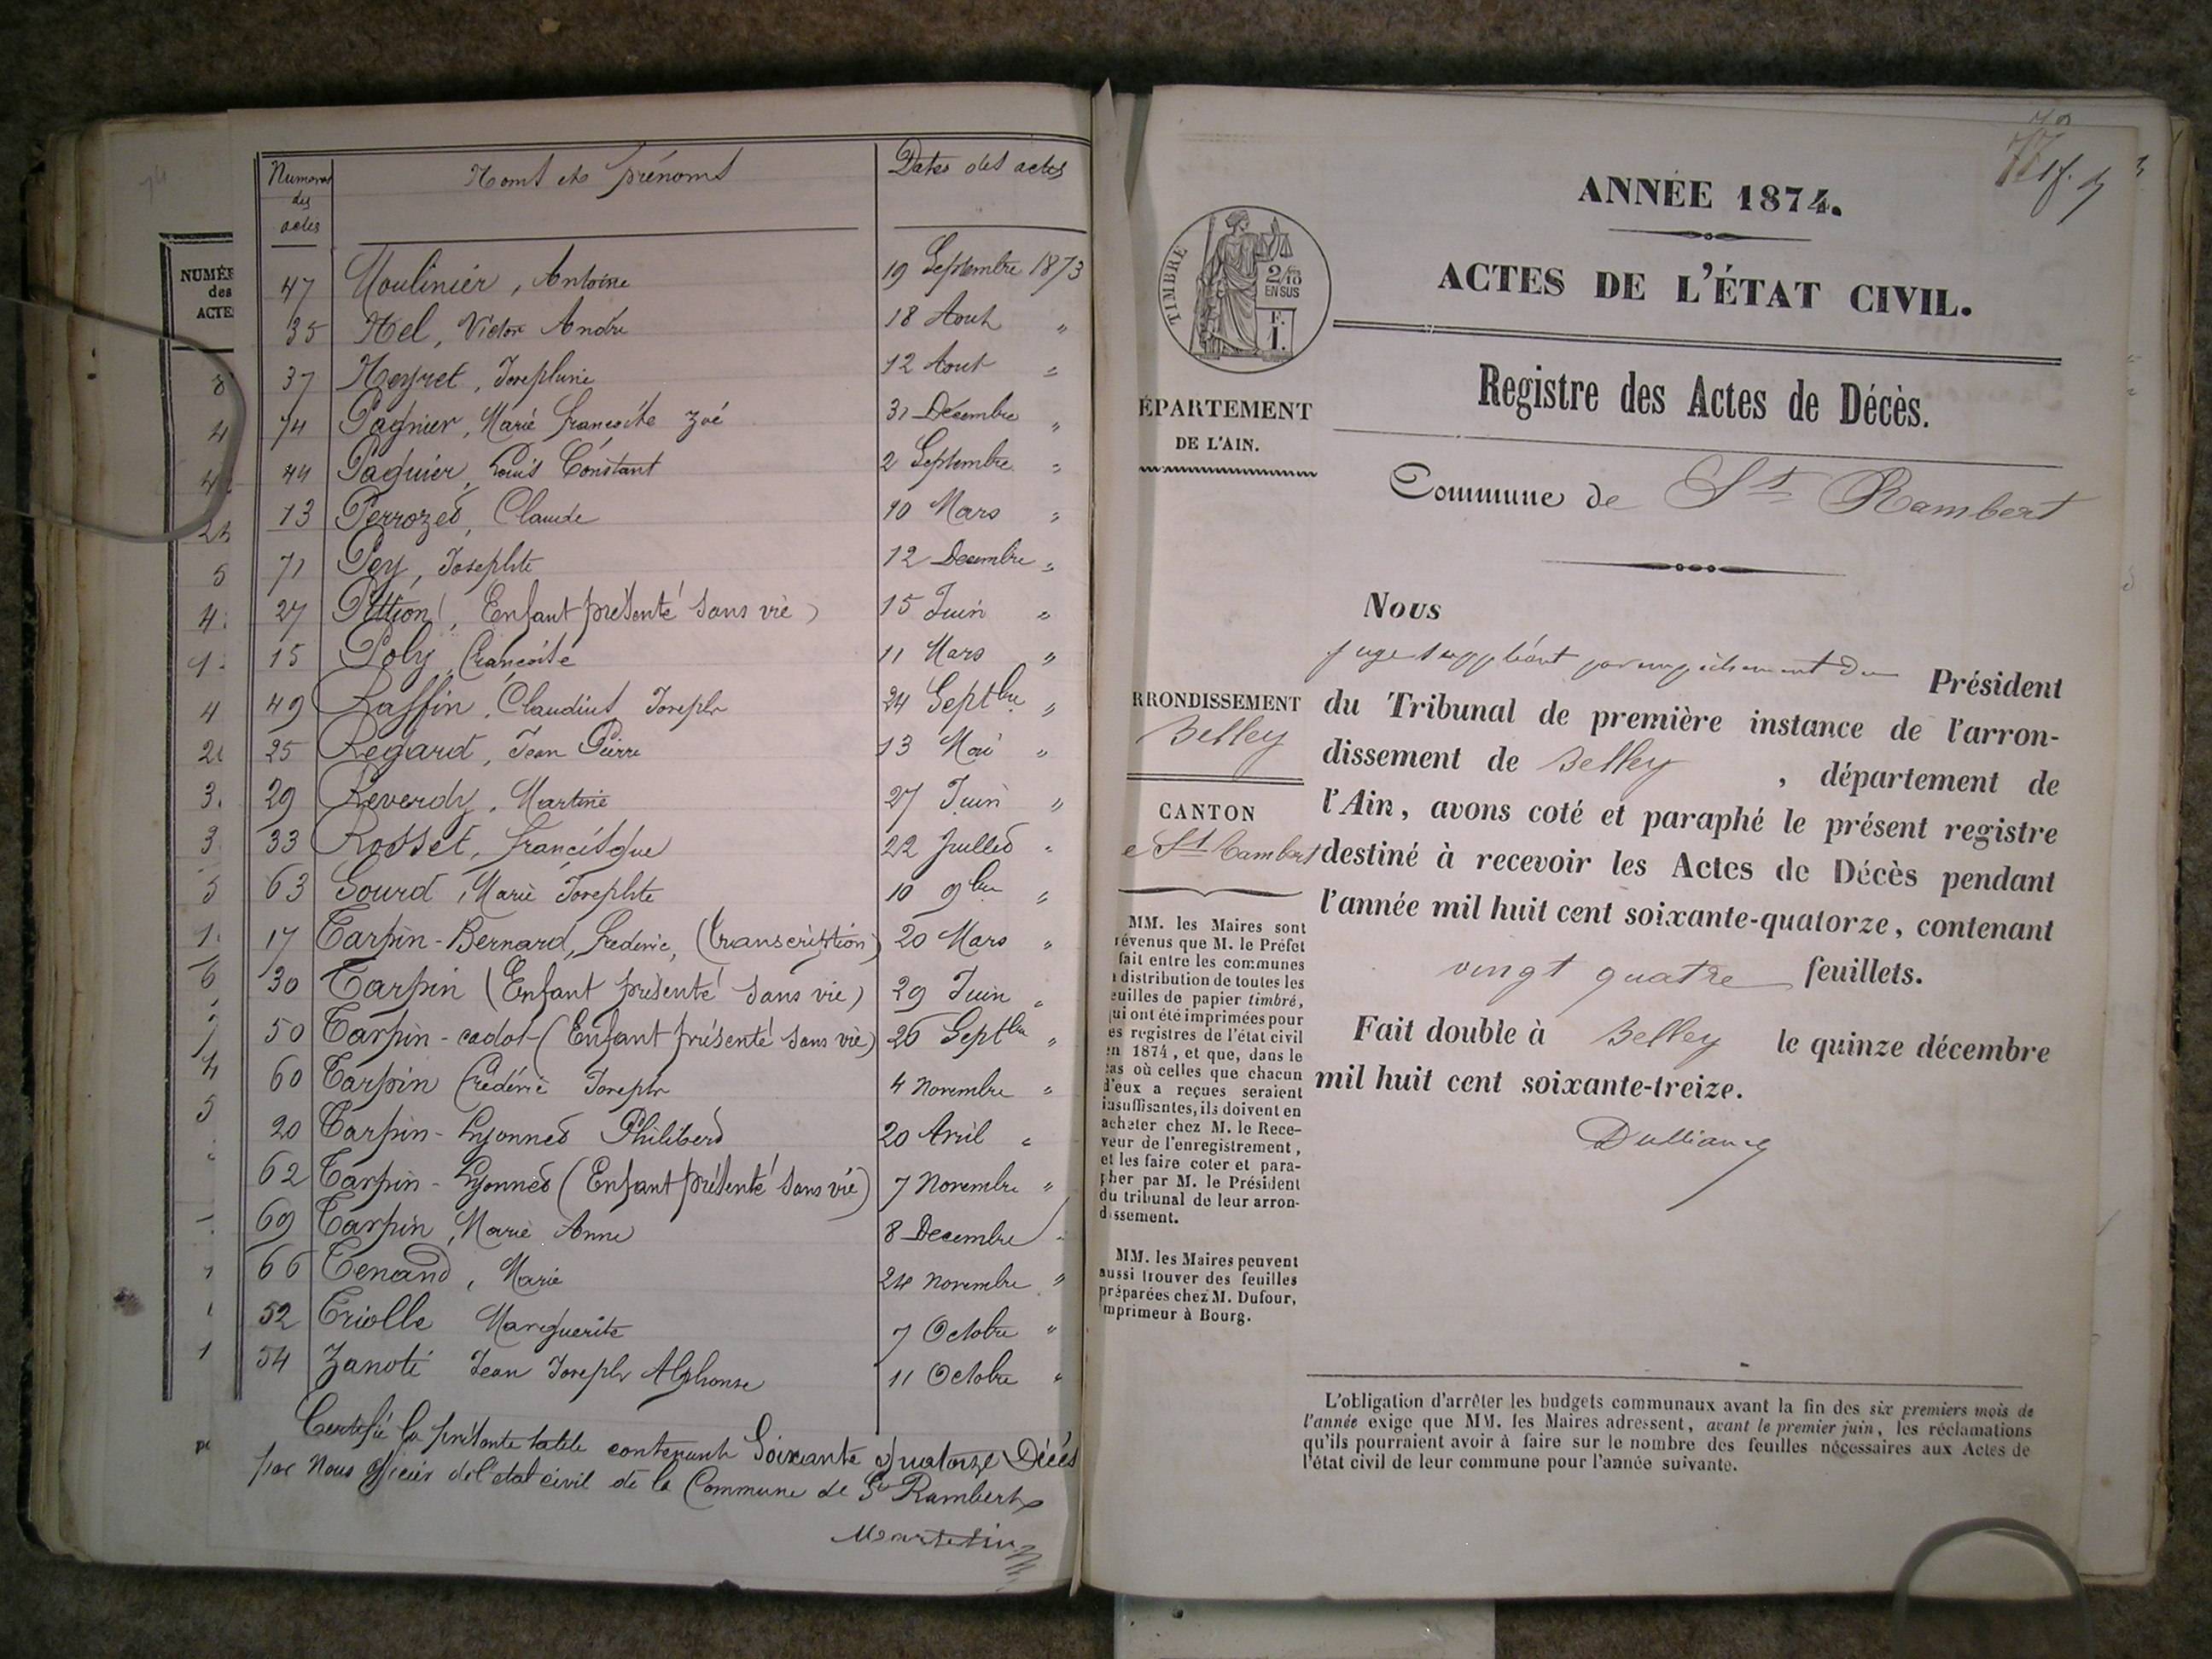 NUMÉR
des
ACTE
Numeros
des
actes
Noms et prénoms
Dates des actes
47 Moulinier, Antoine 19 Septembre 1873
35 Nel, Victor André 18 Aout "
37 Neyret, Josephine 12 Aout "
74 Pagnier, Marie Françoise Zoé 31 Décembre "
44 Paquier, Louis Constant 2 Septembre "
13 Perrozet, Claude 10 Mars "
71 Pey, Josephte 12 Decembre "
27 Pittion, Enfant présenté sans vie) 15 Juin "
15 Poly, Françoise 11 Mars "
49 Raffin, Claudius Joseph 24 Septbre "
25 Regard, Jean Pierre 13 Mai "
29 Reverdy, Martine 27 Juin "
33 Rosset, francisque 22 Juillet "
63 Sourd, Marie Josephte 10 9bre "
17 Tarpin-Bernard, Frederic, (transcription) 20 Mars "
30 Tarpin (Enfant présenté sans vie) 29 Juin "
50 Tarpin-cadot (Enfant présenté sans vie) 26 Septbre "
60 Tarpin Frédéric Joseph 4 Novembre "
20 Tarpin-Lyonnet Philibert 20 Avril "
62 Tarpin-Lyonnet (Enfant présenté sans vie) 7 Novembre "
69 Tarpin, Marie Anne 8 Decembre "
66 Tenand, Marie 24 novembre "
52 Triolle Marguerite 7 Octobre "
54 Zanoté Jean Joseph Alphonse 11 Octobre "
Certifié la présente table contenant Soixante quatorze Décés
par Nous officier de l'etat civil de la Commune de St Rambert
ANNÉE 1874.
ACTES DE L'ÉTAT CIVIL.
TIMBRE
2/10
EN SUS
F.
1.
Registre des Actes de Décès.
ÉPARTEMENT
DE L'AIN.
Commune de St Rambert
Nous
juge suppléant par empêchement du Président
RRONDISSEMENT
Belley
du Tribunal de première instance de l'arron-
dissement de Belley , département de
l'Ain, avons coté et paraphé le présent registre
destiné à recevoir les Actes de Décès pendant
l'année mil huit cent soixante-quatorze, contenant
vingt quatre feuillets.
Fait double à Belley le quinze décembre
mil huit cent soixante-treize.
CANTON
e St Rambert
MM. les Maires sont
révenus que M. le Préfet
fait entre les communes
a distribution de toutes les
euilles de papier timbré,
qui ont été imprimées pour
es registres de l'état civil
en 1874, et que, dans le
cas où celles que chacun
d'eux a reçues seraient
insuffisantes, ils doivent en
acheter chez M. le Rece-
veur de l'enregistrement,
et les faire coter et para-
pher par M. le Président
du tribunal de leur arron-
dissement.
MM. les Maires peuvent
aussi trouver des feuilles
préparées chez M. Dufour,
imprimeur à Bourg.
L'obligation d'arrêter les budgets communaux avant la fin des six premiers mois de
l'année exige que MM. les Maires adressent, avant le premier juin, les réclamations
qu'ils pourraient avoir à faire sur le nombre des feuilles nécessaires aux Actes de
l'état civil de leur commune pour l'année suivante.